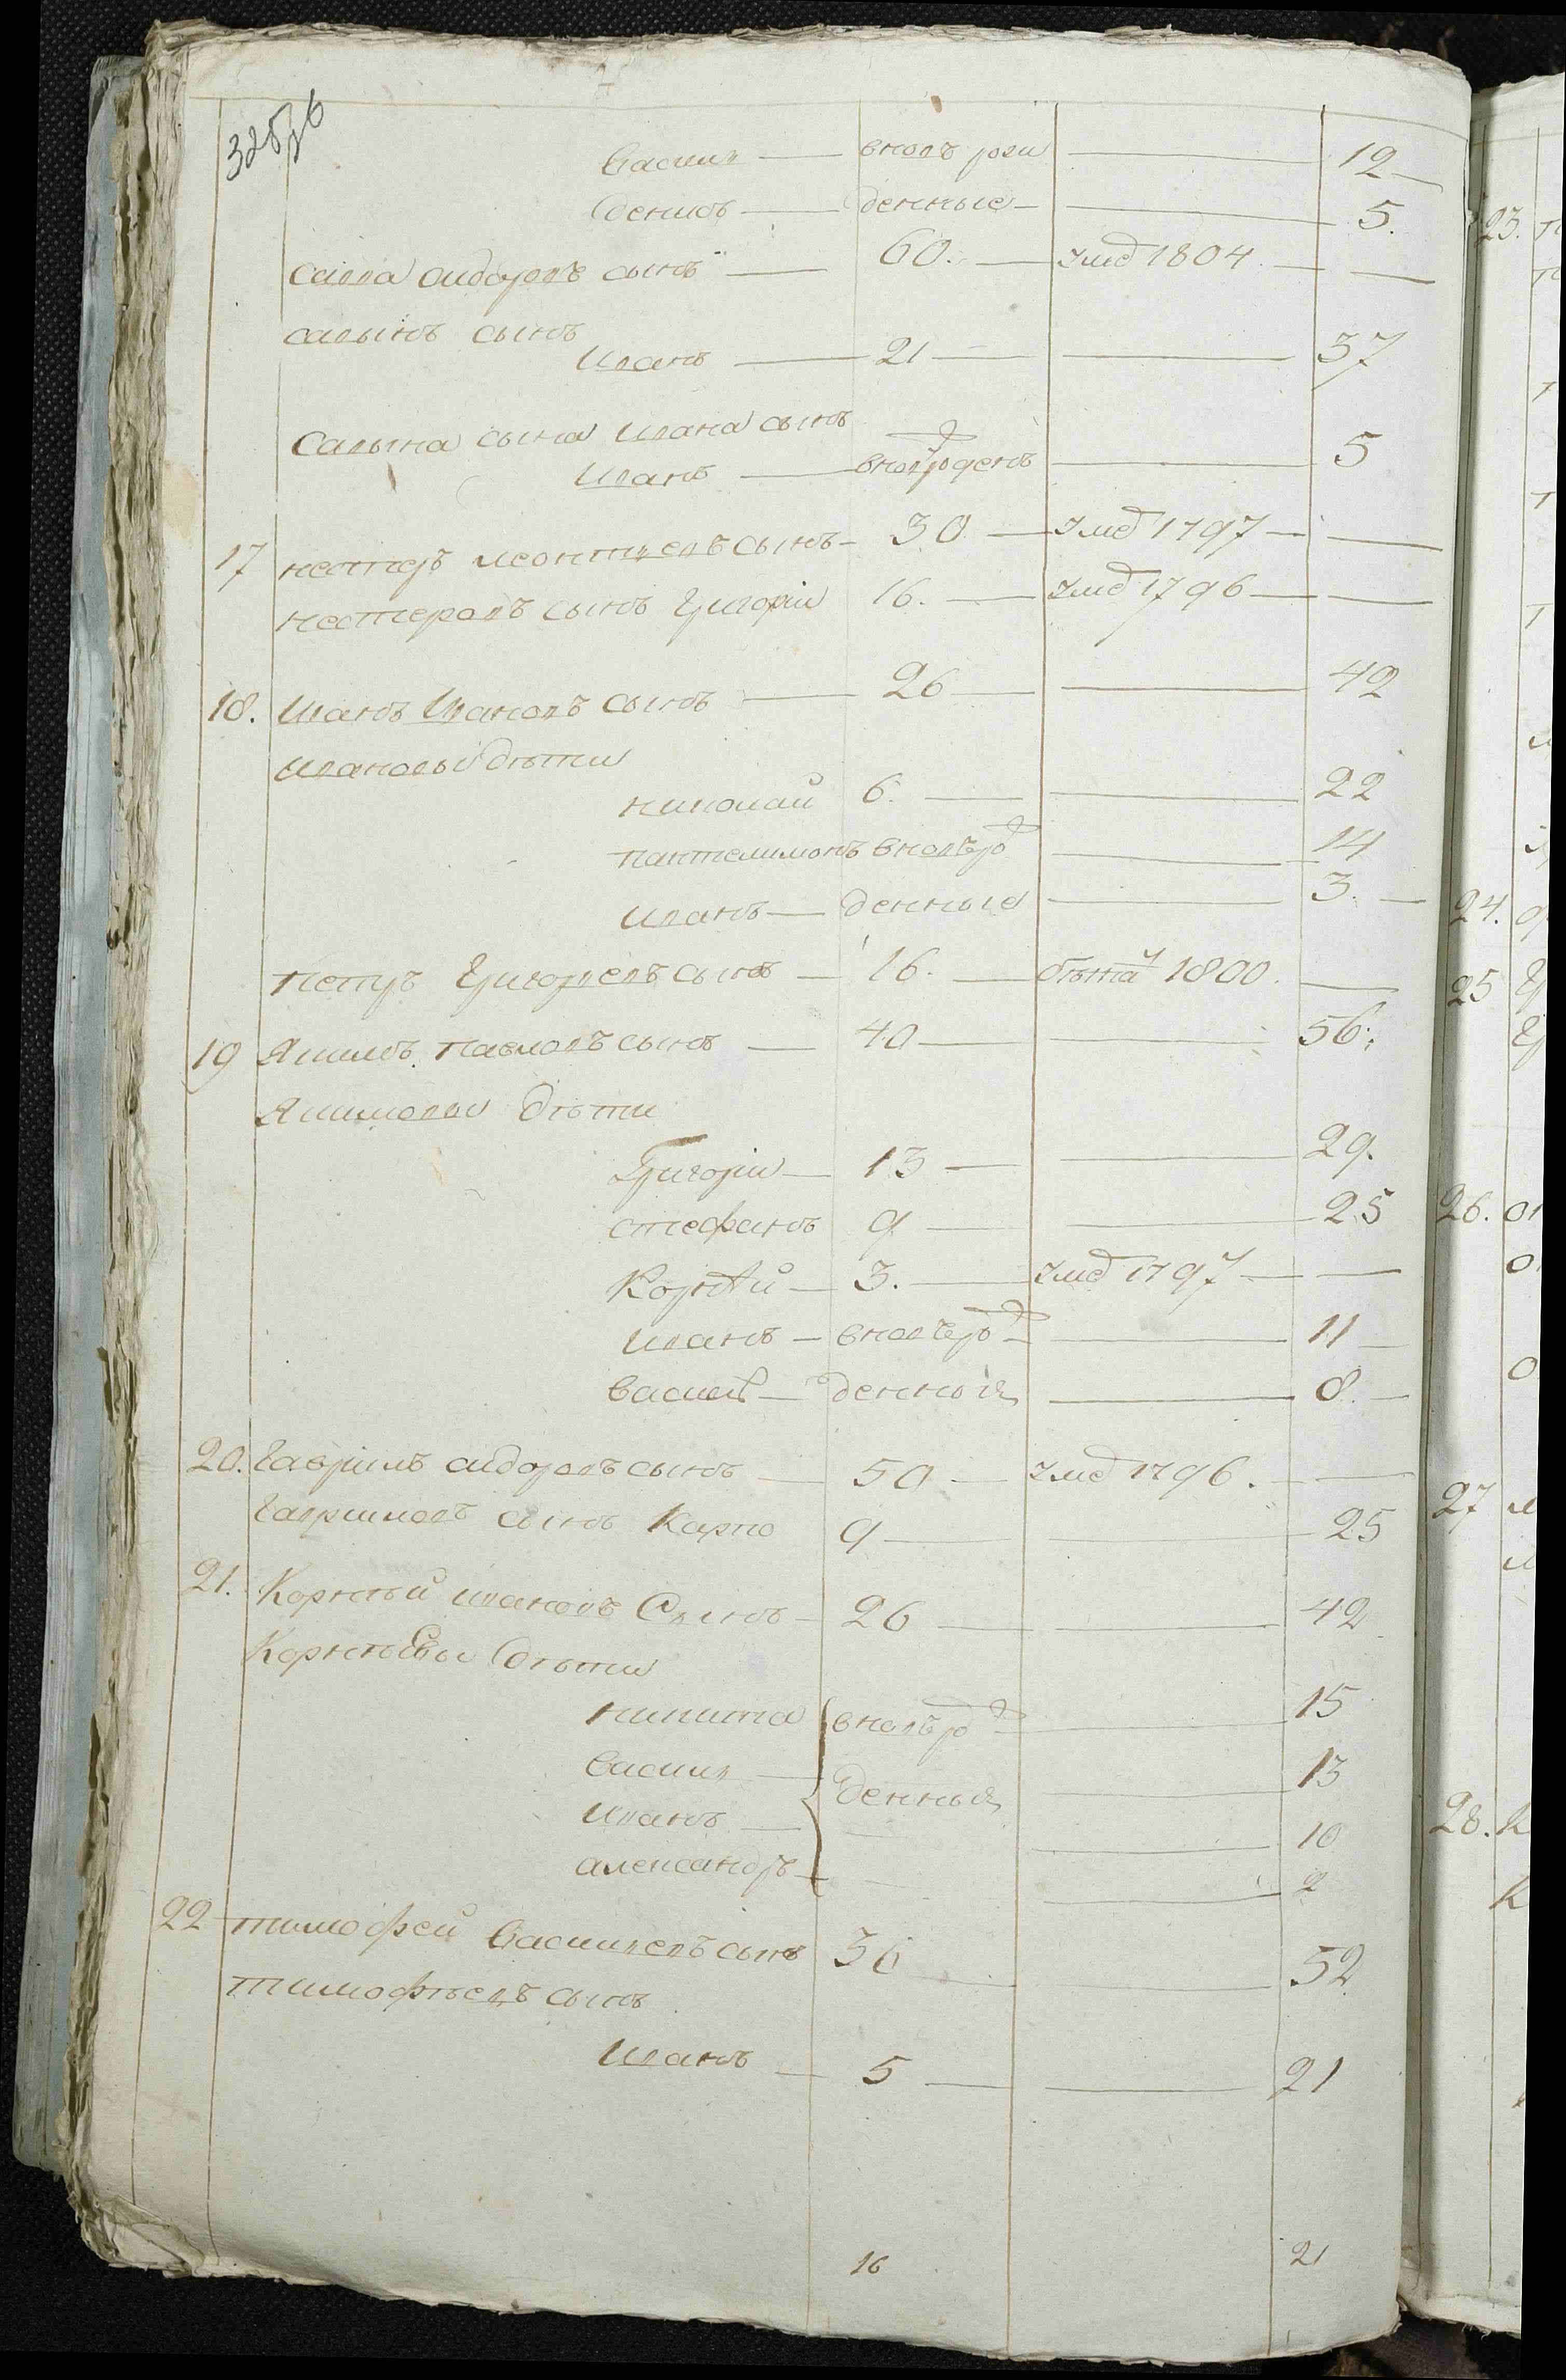 Василı вновь рож 12
Денисъ денные 5.
Савва Сидоровъ сынъ 60. умер 1804
Савынъ сынъ
Иванъ 21 37
Савына сына Ивана сынъ
Иванъ вновь рожденъ 5
17 нестеръ леонтьевъ сынъ 30 умер 1797
нестеровъ сынъ Григорiи 16. умер 1796
18. Иванъ Ивановъ сынъ 26 42
Ивановы дѣти
николай 6. 22
пантелимонъ вновь рож 14
Иванъ денные 3.
петръ Григорьевъ сынъ 16. бѣжа 1800.
19 Якимъ павловъ сынъ 40 56.
Якимовы дѣти
Григорiи 13 29.
стефанъ 9 25
Корнѣй 3. умер 1797
Иванъ вновь рож 11
василı денныя 8.
20. Гаврилъ сидоровъ сынъ 50 умер 1796.
Гавриловъ сынъ Карпо 9 25
21. Корнѣй Ивановъ Сынъ 26 42
Корнѣевы дѣти
никита вновь рож 15
василı денныя 13
Иванъ 10
александръ 2
22 тимофей васильевъ сынъ 36 52
тимофѣевъ сынъ
Иванъ 5 21
16 21
23.
24.
25
26.
27
28.